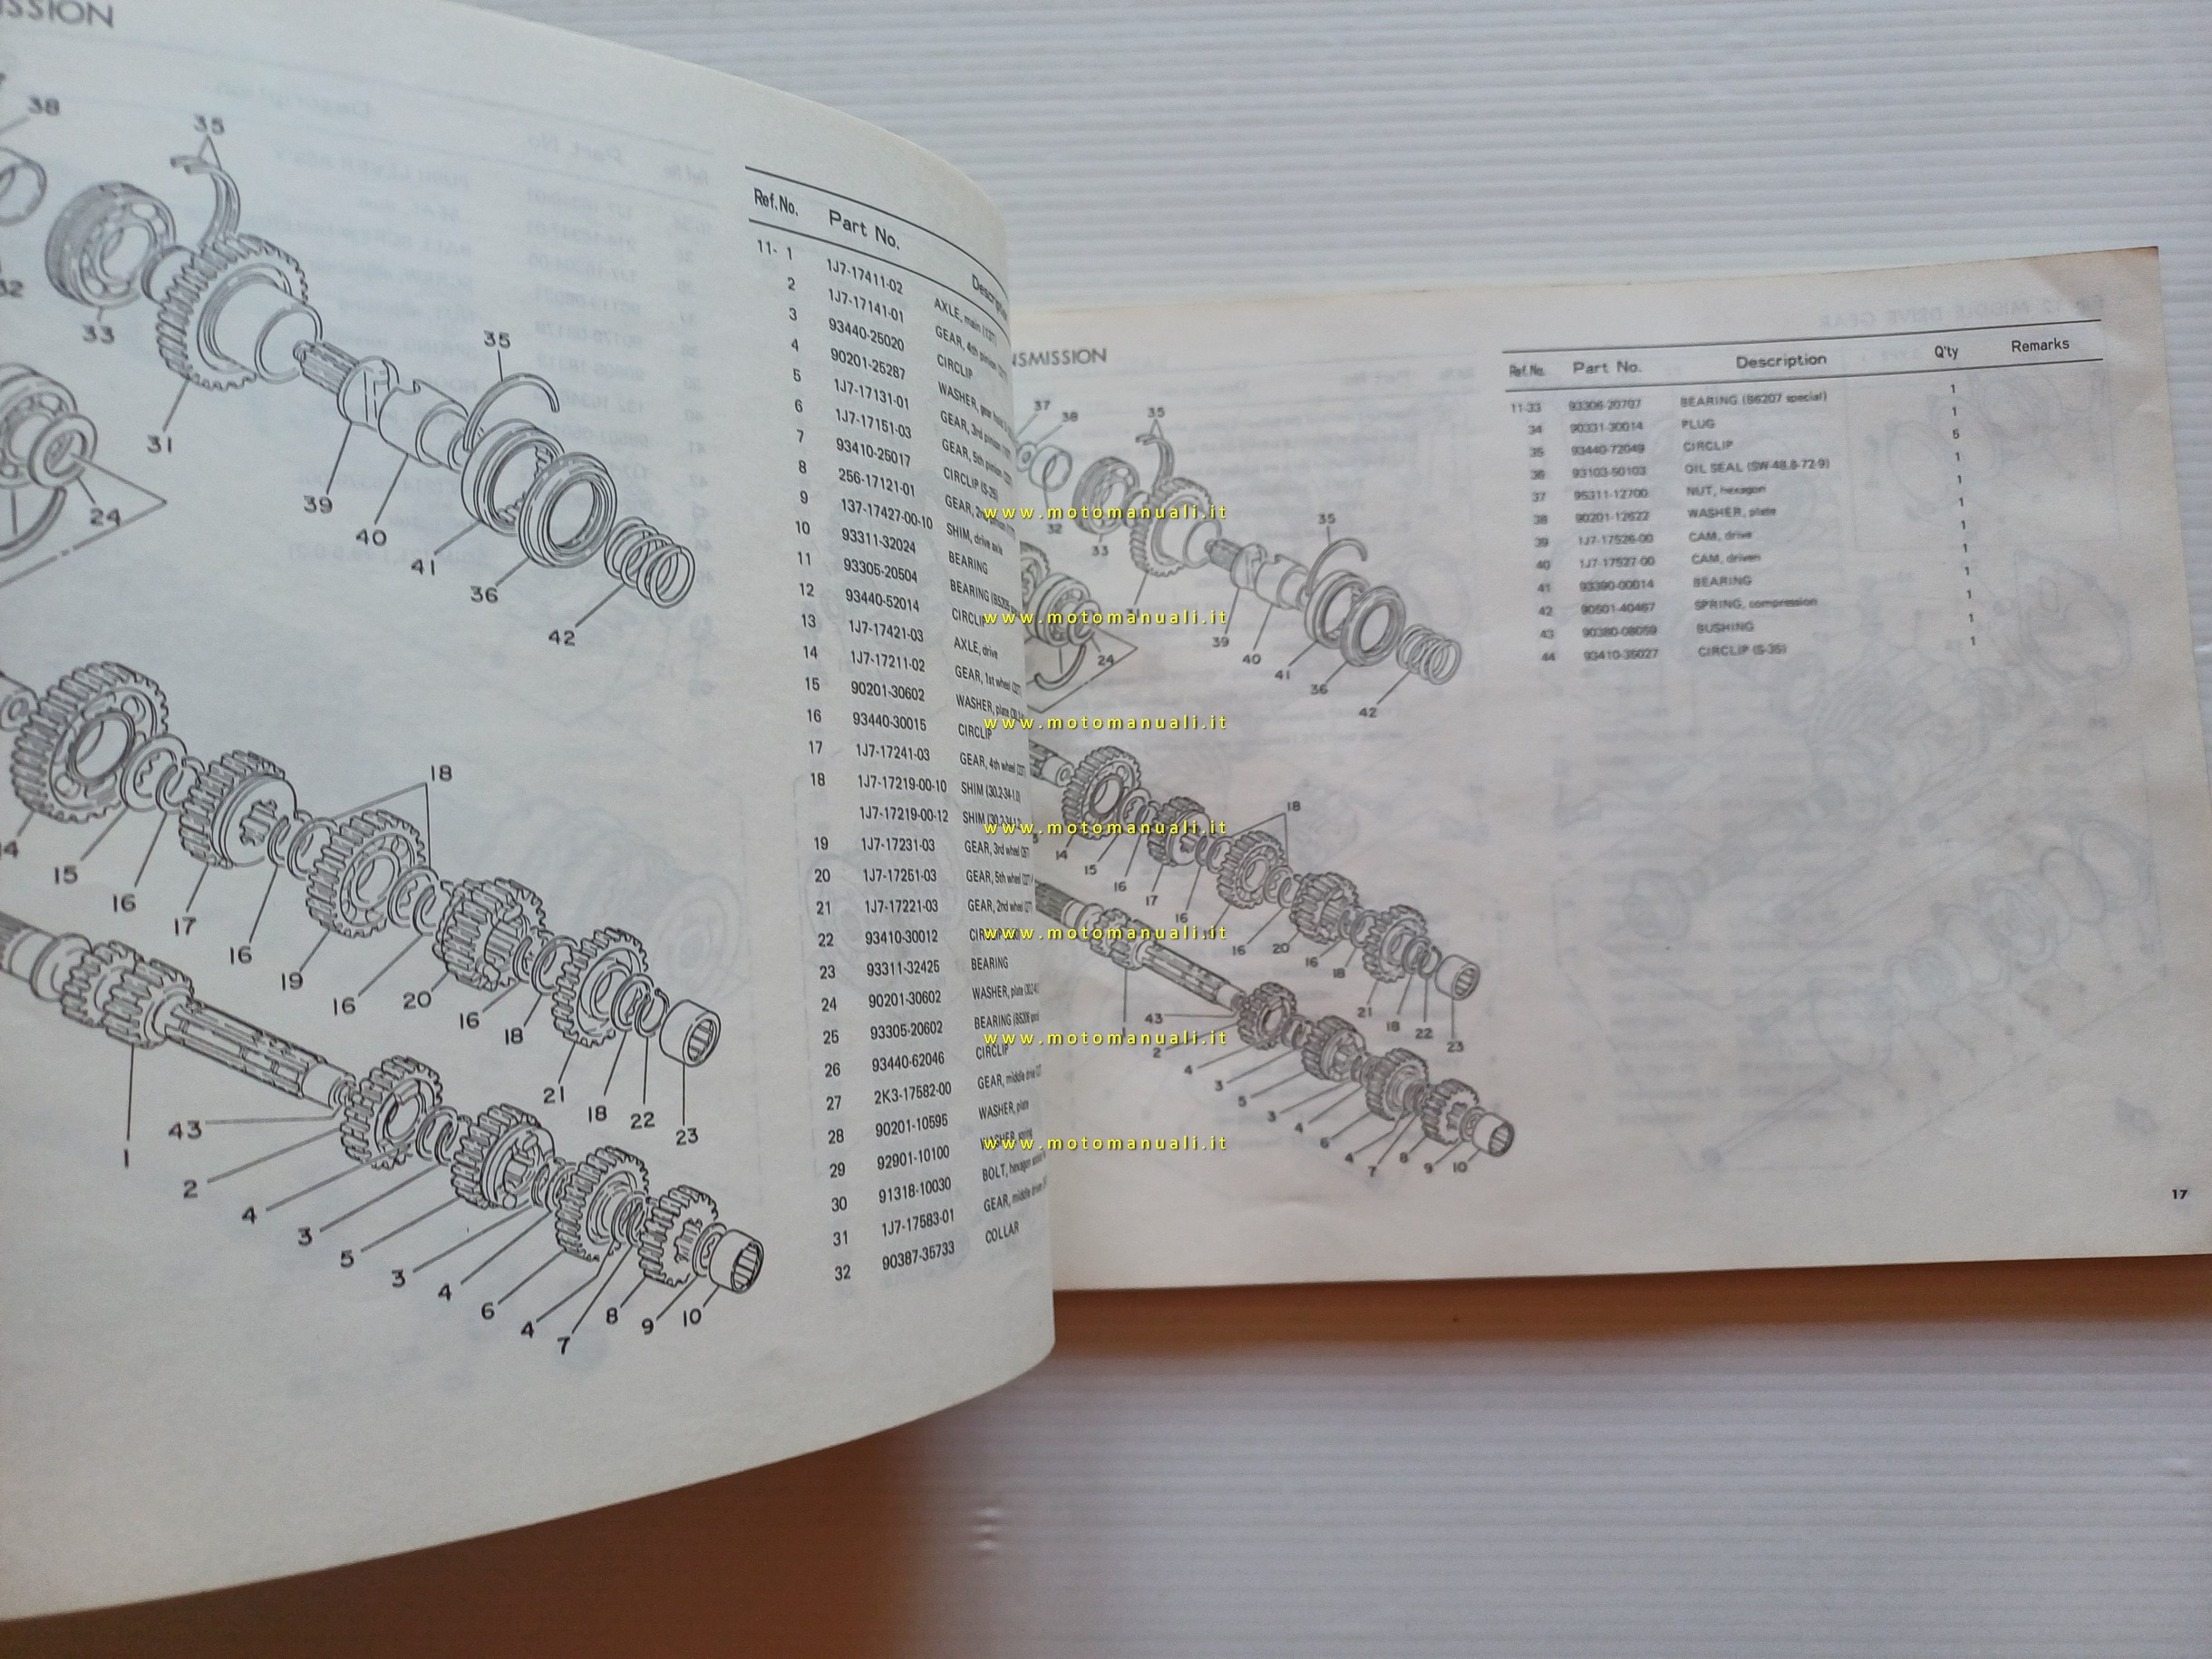 SSION
38
35
33
31
35
39
40
41
36
42
24
18
15
16
17
16
19
16
20
16
18
21
18
22
23
1
43
2
4
3
5
3
4
6
4
7
8
9
10
Ref.No. Part No.
11- 1 1J7-17411-02 AXLE, main
2 1J7-17141-01 GEAR, 4th pinion
3 93440-25020 CIRCLIP
4 90201-25287 WASHER,
5 1J7-17131-01 GEAR, 3rd pinion
6 1J7-17151-03 GEAR, 5th pinion
7 93410-25017 CIRCLIP (S-25)
8 256-17121-01 GEAR, 2nd
9 137-17427-00-10 SHIM, drive axle
10 93311-32024 BEARING
11 93305-20504 BEARING
12 93440-52014 CIRCLIP
13 1J7-17421-03 AXLE, drive
14 1J7-17211-02 GEAR, 1st wheel
15 90201-30602 WASHER, plate
16 93440-30015 CIRCLIP
17 1J7-17241-03 GEAR, 4th wheel
18 1J7-17219-00-10 SHIM (30.2-34-1.0)
1J7-17219-00-12 SHIM
19 1J7-17231-03 GEAR, 3rd wheel
20 1J7-17251-03 GEAR, 5th wheel
21 1J7-17221-03 GEAR, 2nd wheel
22 93410-30012
23 93311-32425 BEARING
24 90201-30602 WASHER, plate
25 93305-20602 BEARING
26 93440-62046 CIRCLIP
27 2K3-17582-00 GEAR, middle drive
28 90201-10595 WASHER, plate
29 92901-10100 WASHER, spring
30 91318-10030 BOLT, hexagon
31 1J7-17583-01 GEAR, middle drive
32 90387-35733 COLLAR
NSMISSION
37
38
35
32
33
31
35
39
40
41
36
42
24
18
14
15
16
17
16
16
20
16
18
21
18
22
23
1
43
2
4
3
5
3
4
6
4
7
8
9
10
Ref.No. Part No. Description Q'ty Remarks
11-33 93306-20707 BEARING (B6207 special) 1
34 90331-30014 PLUG 1
35 93440-72049 CIRCLIP 5
36 93103-50103 OIL SEAL (SW-48.8-72-9) 1
37 95311-12700 NUT, hexagon 1
38 90201-12622 WASHER, plate 1
39 1J7-17526-00 CAM, drive 1
40 1J7-17527-00 CAM, driven 1
41 93390-00014 BEARING 1
42 90501-40467 SPRING, compression 1
43 90380-08059 BUSHING 1
44 93410-35027 CIRCLIP (S-35) 1
17
www.motomanuali.it
www.motomanuali.it
www.motomanuali.it
www.motomanuali.it
www.motomanuali.it
www.motomanuali.it
www.motomanuali.it